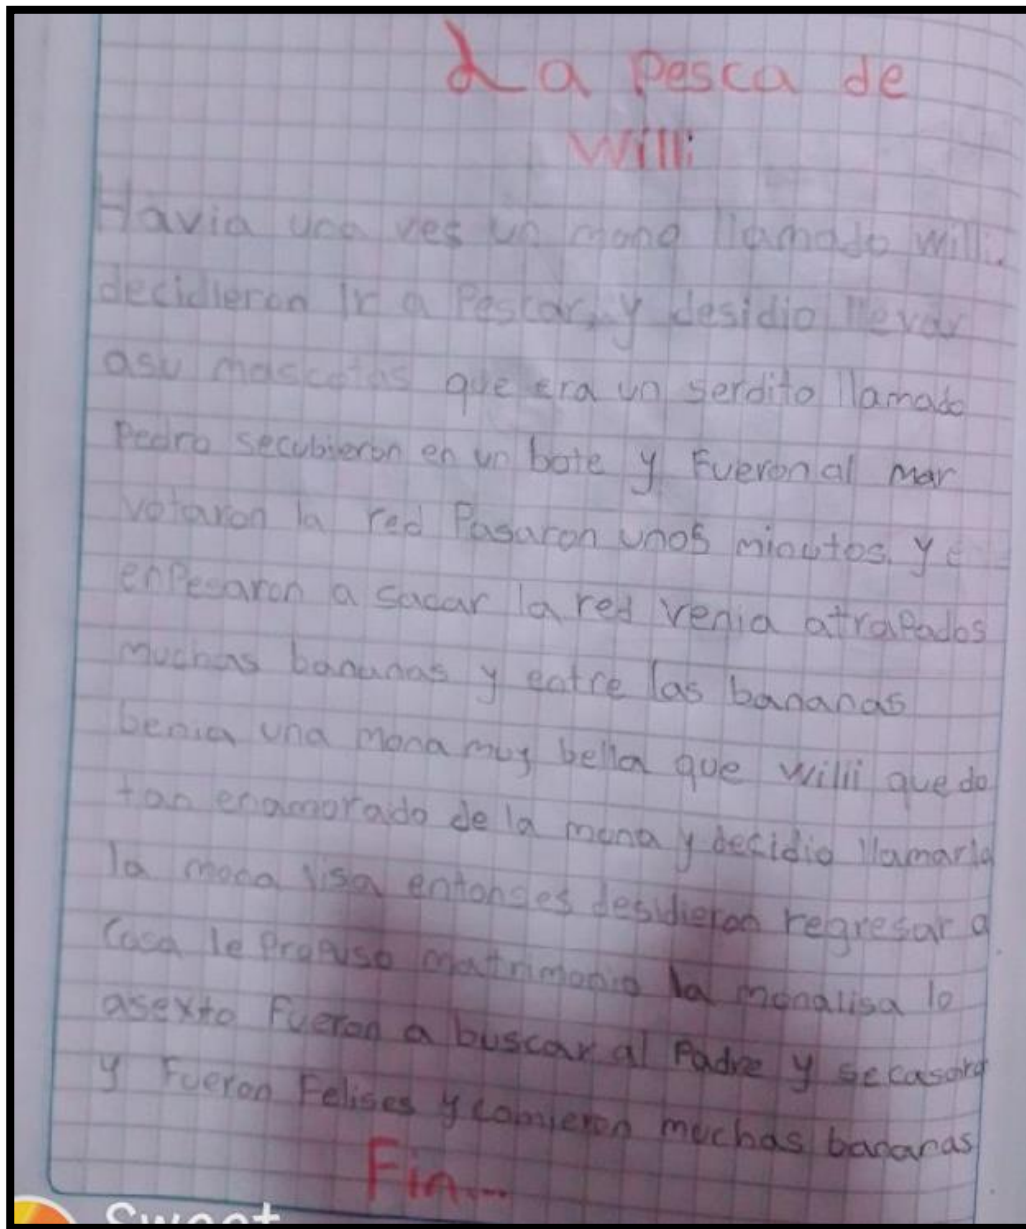 La pesca de
Willi
Havia una ves un mono llamado Willi.
decidieron ir a Pescar, y desidio llevar
asu mascotas que era un serdito llamado
Pedro secubieron en un bote y Fueron al mar
votaron la red Pasaron unos minutos, y e
enPesaron a sacar la red venia atraPados
muchas bananas y entre las bananas
benia una mona muy bella que willi quedo
tan enamorado de la mona y decidio llamarla
la mona lisa entonses desidieron regresar a
Casa le ProPuso matrimonio la monalisa lo
asexto Fueron a buscar al Padre y secasaro
y Fueron Felises y comieron muchas bananas
Fin...
Sweet